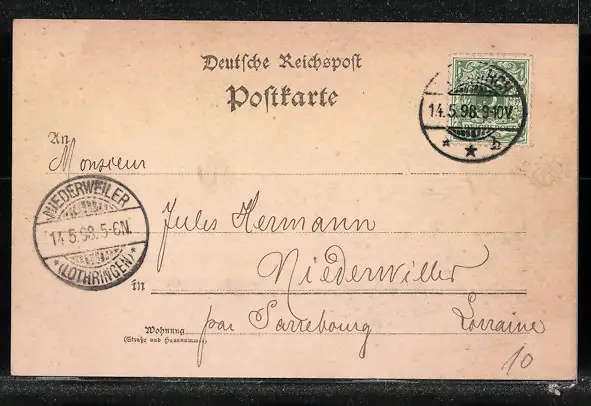 Deutsche Reichspost
Postkarte
14.5.98.9-10V.
* * b
REICHSPOST
An
Monsieur
NIEDERWEILER
14.5.98.5-6N.
* (LOTHRINGEN) *
Jules Hermann
in Niederwiller
Wohnung
(Straße und Hausnummer)
par Sarrebourg Lorraine
10